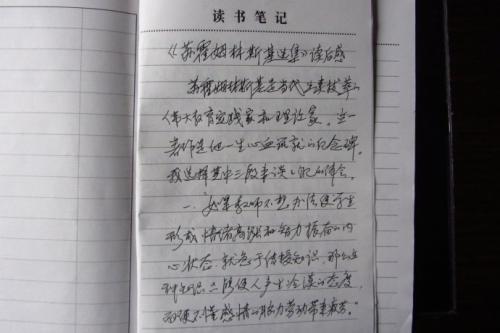 读书笔记
《苏霍姆林斯基选集》读后感
苏霍姆林斯基是当代出类拔萃的
伟大教育实践家和理论家。这一
著作是他一生心血筑就的纪念碑。
我选择其中三段来谈谈我的体会。
一、如果教师不想办法使学生
形成情绪高涨和智力振奋的内
心状态，就急于传授知识，那么这
种知识只能使人产生冷漠的态度，
而使不懂感情的脑力劳动带来疲劳。"